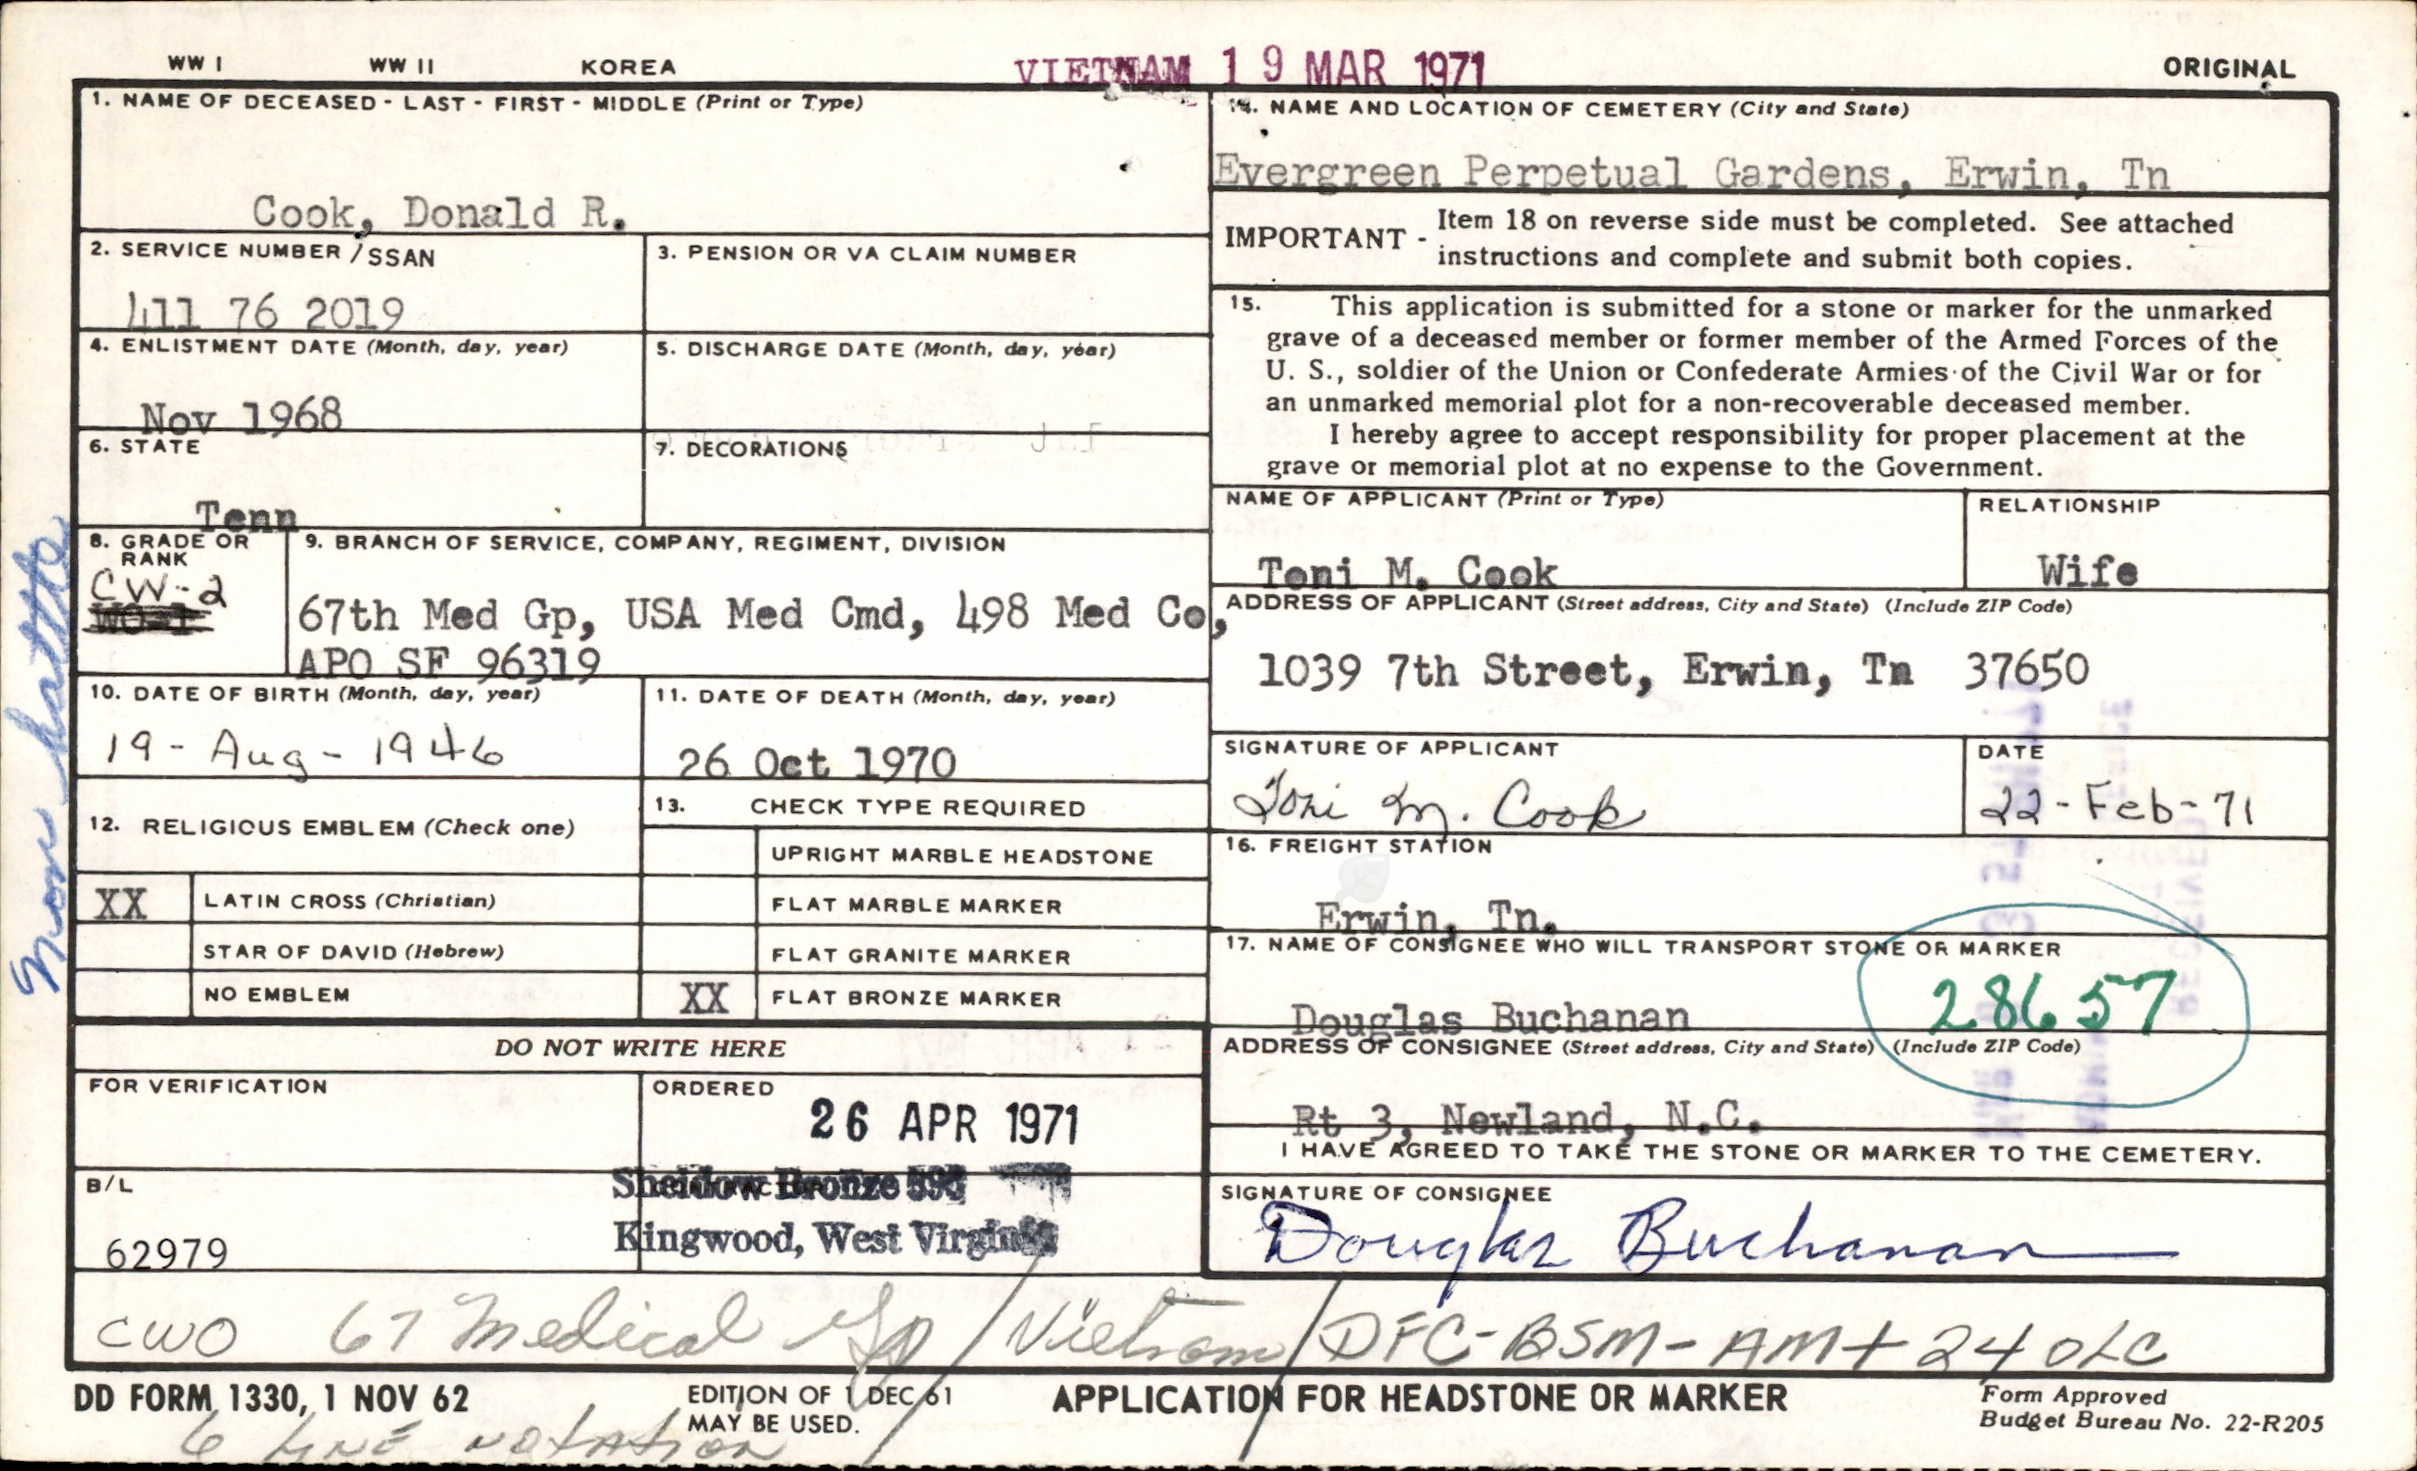 WW I WW II KOREA VIETNAM 19 MAR 1971 ORIGINAL
1. NAME OF DECEASED - LAST - FIRST - MIDDLE (Print or Type)
Cook, Donald R.
2. SERVICE NUMBER / SSAN
411 76 2019
3. PENSION OR VA CLAIM NUMBER
4. ENLISTMENT DATE (Month, day, year)
Nov 1968
5. DISCHARGE DATE (Month, day, year)
6. STATE
Tenn
7. DECORATIONS
8. GRADE OR RANK
CW-2
WO-1
9. BRANCH OF SERVICE, COMPANY, REGIMENT, DIVISION
67th Med Gp, USA Med Cmd, 498 Med Co,
APO SF 96319
10. DATE OF BIRTH (Month, day, year)
19 - Aug - 1946
11. DATE OF DEATH (Month, day, year)
26 Oct 1970
12. RELIGIOUS EMBLEM (Check one)
XX LATIN CROSS (Christian)
STAR OF DAVID (Hebrew)
NO EMBLEM
13. CHECK TYPE REQUIRED
UPRIGHT MARBLE HEADSTONE
FLAT MARBLE MARKER
FLAT GRANITE MARKER
XX FLAT BRONZE MARKER
DO NOT WRITE HERE
FOR VERIFICATION
ORDERED
26 APR 1971
B/L
62979
Sheidow Bronze
Kingwood, West Virginia
14. NAME AND LOCATION OF CEMETERY (City and State)
Evergreen Perpetual Gardens, Erwin, Tn
IMPORTANT - Item 18 on reverse side must be completed. See attached
instructions and complete and submit both copies.
15. This application is submitted for a stone or marker for the unmarked
grave of a deceased member or former member of the Armed Forces of the
U. S., soldier of the Union or Confederate Armies of the Civil War or for
an unmarked memorial plot for a non-recoverable deceased member.
I hereby agree to accept responsibility for proper placement at the
grave or memorial plot at no expense to the Government.
NAME OF APPLICANT (Print or Type)
Toni M. Cook
RELATIONSHIP
Wife
ADDRESS OF APPLICANT (Street address, City and State) (Include ZIP Code)
1039 7th Street, Erwin, Tn 37650
SIGNATURE OF APPLICANT
Toni M. Cook
DATE
22-Feb-71
16. FREIGHT STATION
Erwin, Tn.
17. NAME OF CONSIGNEE WHO WILL TRANSPORT STONE OR MARKER
Douglas Buchanan
28657
ADDRESS OF CONSIGNEE (Street address, City and State) (Include ZIP Code)
Rt 3, Newland, N.C.
I HAVE AGREED TO TAKE THE STONE OR MARKER TO THE CEMETERY.
SIGNATURE OF CONSIGNEE
Douglas Buchanan
CWO 67 Medical Gp / Vietnam / DFC-BSM-AM+24 OLC
DD FORM 1330, 1 NOV 62
EDITION OF 1 DEC 61
MAY BE USED.
APPLICATION FOR HEADSTONE OR MARKER
Form Approved
Budget Bureau No. 22-R205
6 LINE NOTATION